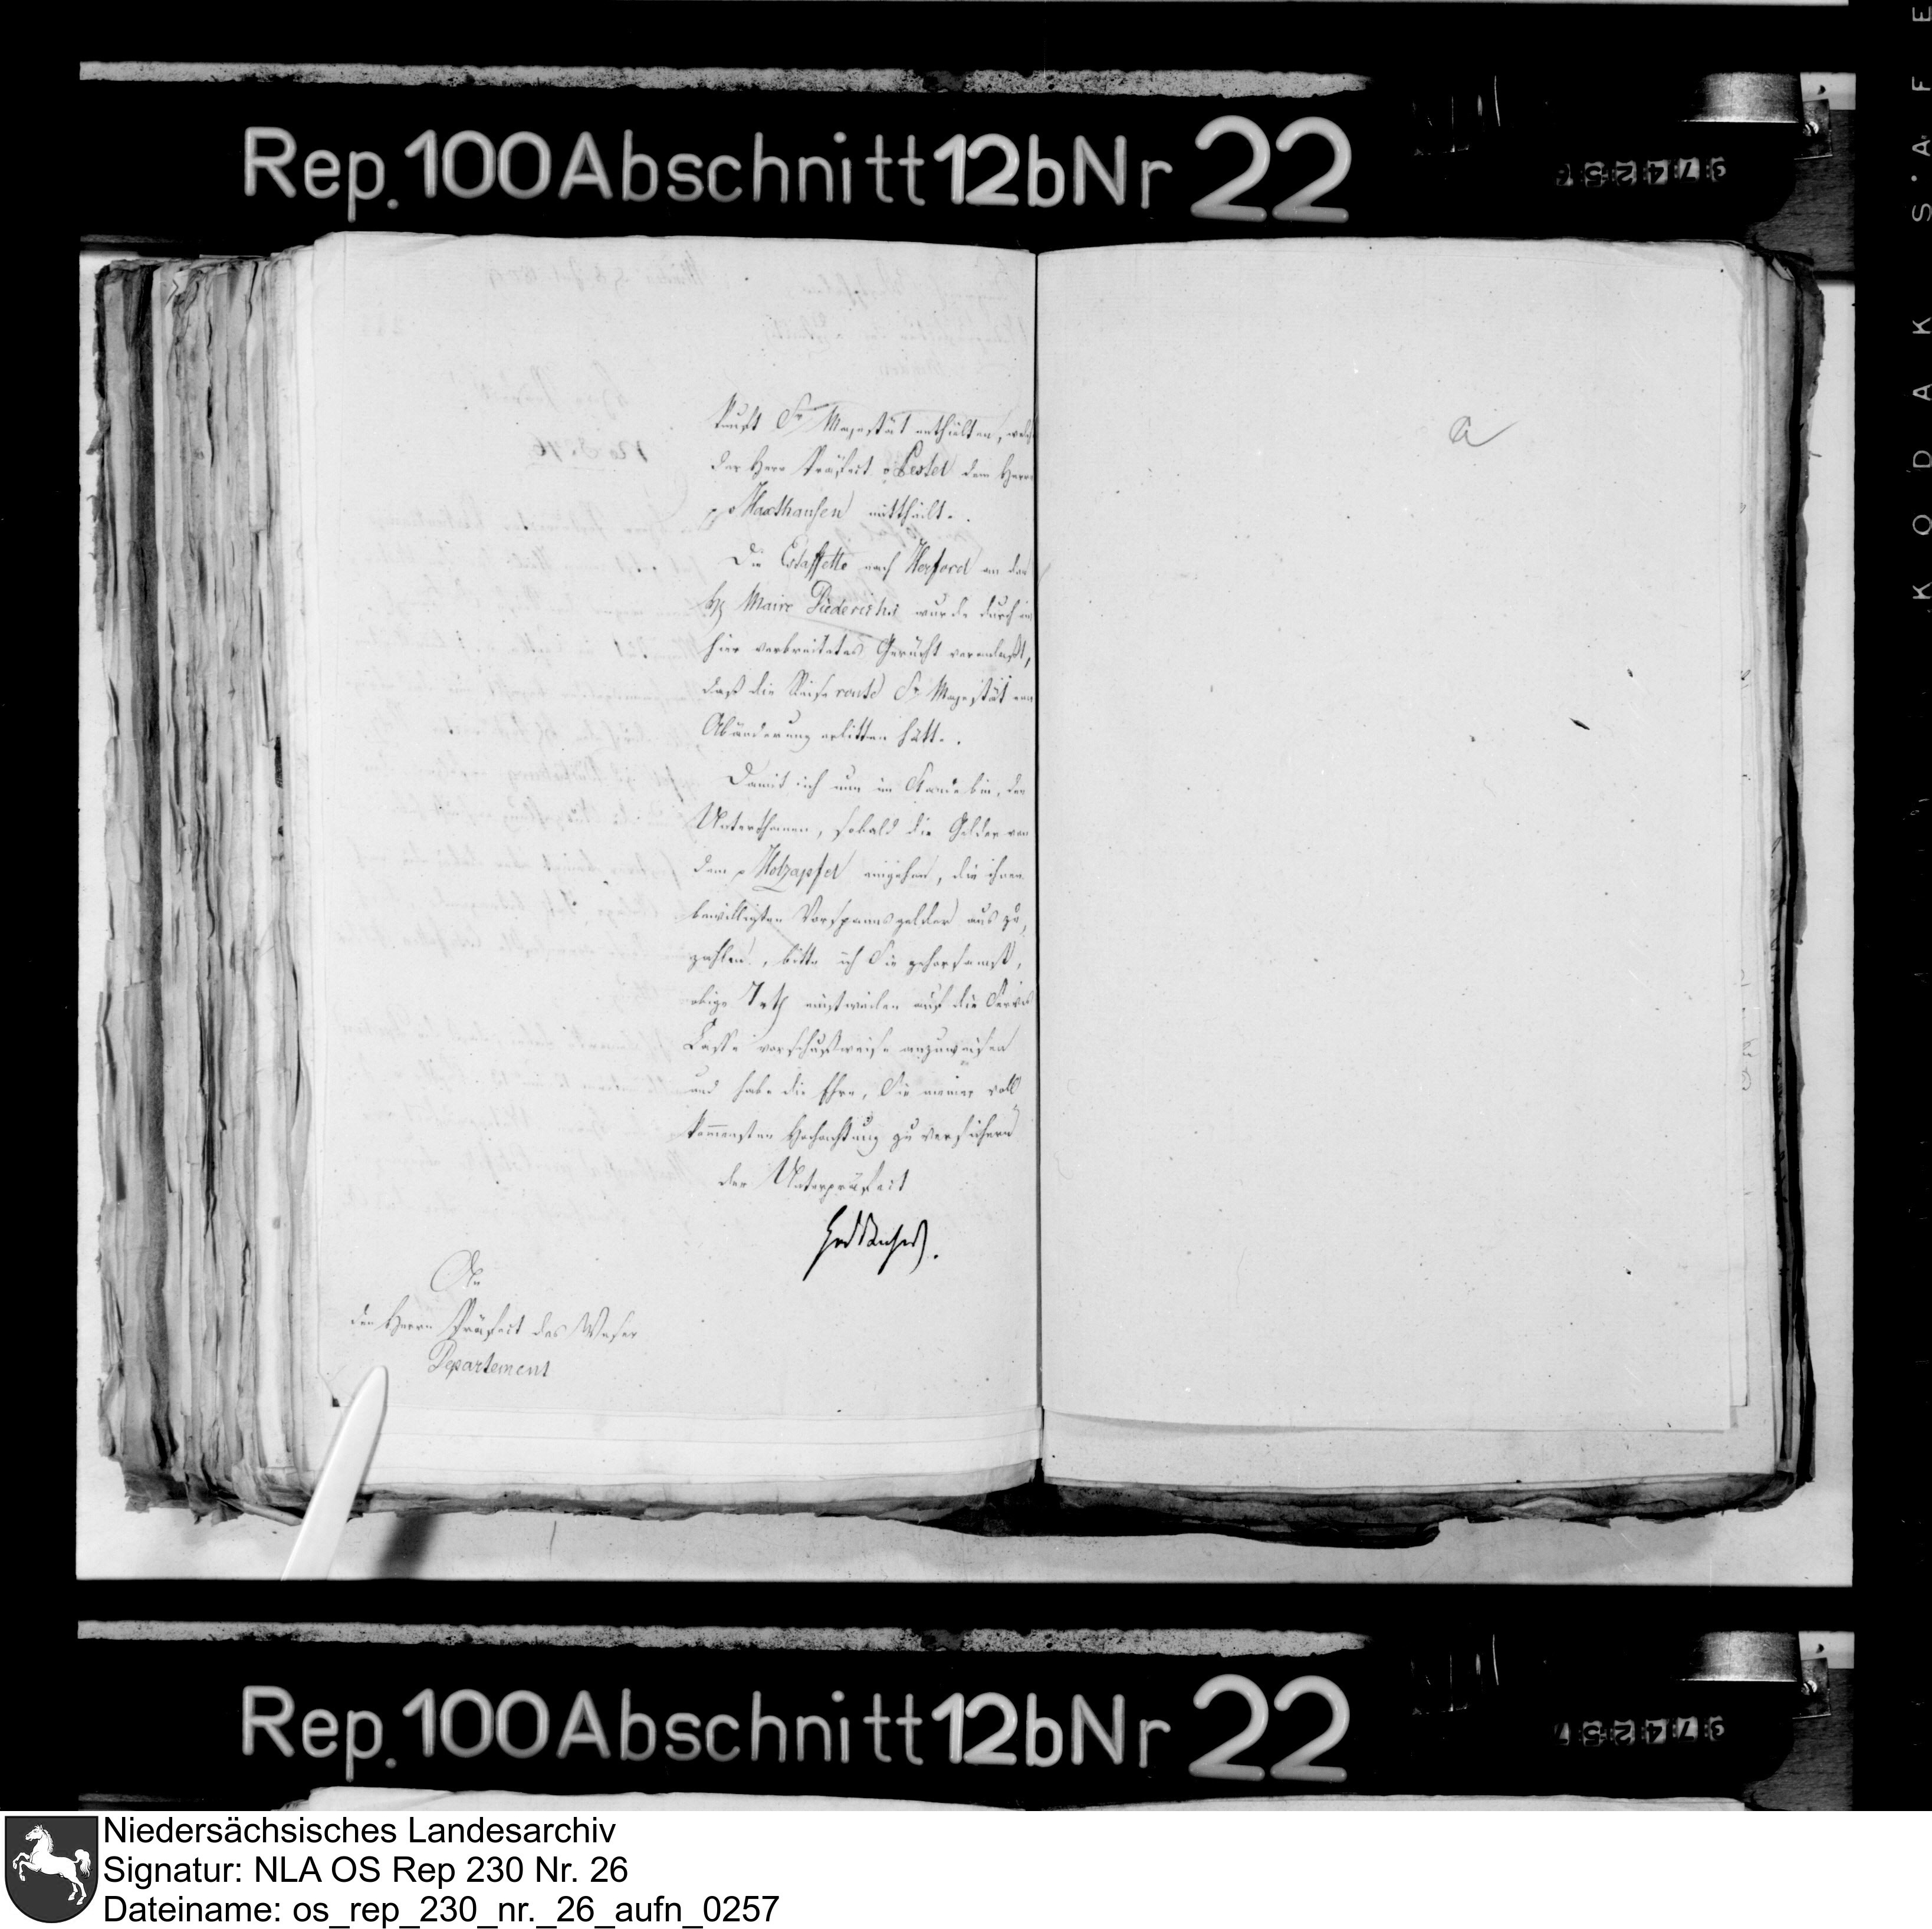 Rep. 100 Abschnitt 12b Nr 22
kunft Sr Majestät enthalten, welche
der Herr Präfect v Pestel dem Herrn
p v Haxthausen mittheilt.
Die Estaffette nach Herford an den
H. Maire Diederichs wurde durch ein
hier verbreitetes Gerücht veranlaßt,
daß die Reise route Sr Majestät eine
Abänderung erlitten hätte.
Damit ich nun im Stande bin, den
Unterthanen, sobald die Gelder von
dem p Holzapfel eingehen, die ihnen
bewilligten Vorspannsgelder aus zu
zahlen, bitte ich Sie gehorsamst,
obige rth einstweilen auf die
Casse vorschußweise anzuweisen
und habe die Ehre, Sie meiner voll
kommensten Hochachtung zu versichern
der Unterpräfect
An
den Herrn Präfect des Weser
Departement
a
KODAK S.A F E
Rep. 100 Abschnitt 12b Nr 22
Niedersächsisches Landesarchiv
Signatur: NLA OS Rep 230 Nr. 26
Dateiname: os_rep_230_nr._26_aufn_0257